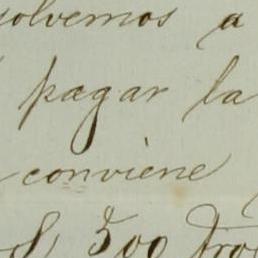 solvemos a
pagar la
conviene
500